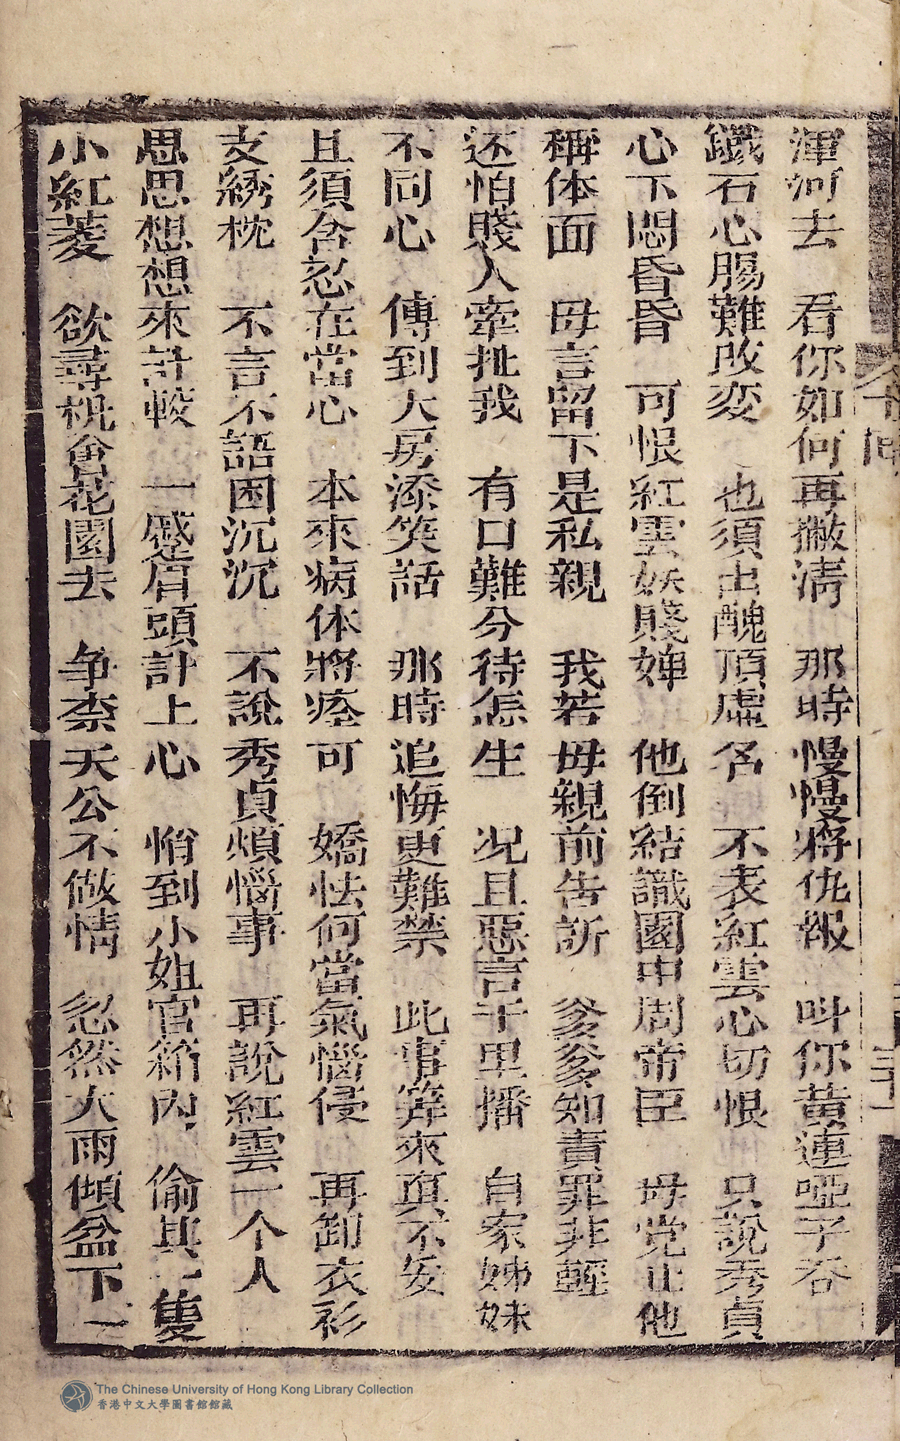 渾河去　看你如何再撇清　那時慢慢將仇報　叫你黃連啞子吞
鐵石心腸難改变　也須出醜頂虛名　不表紅雲心切恨　只說秀貞
心下悶昏昏　可恨紅雲妖賤婢　他倒結識園中周帝臣　毋党止他
稱体面　毋言留下是私親　我若毋親前告訴　爹爹知責罪非輕
还怕賤人牽扯我　有口難分待怎生　况且惡言千里播　自家姊妹
不同心　傳到大房添笑話　那時追悔更難禁　此事筭來眞不妥
且須含忍在當心　本來病体將痊可　嬌怯何當氣惱侵　再卸衣衫
支綉枕　不言不語困沉沉　不說秀貞煩惱事　再說紅雲一个人
思思想想來計較　一蹙眉頭計上心　悄到小姐官箱内　偷其一隻
小紅菱　欲尋機會花園去　争柰天公不做情　忽然大雨傾盆下
三十一
The Chinese University of Hong Kong Library Collection
香港中文大學圖書館館藏